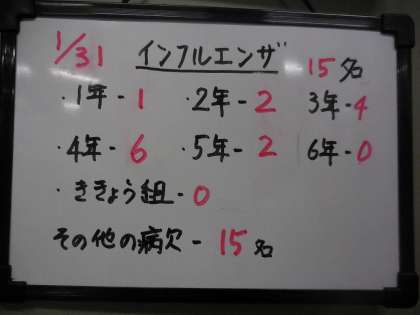 1/31 インフルエンザ 15名
・1年-1 ・2年-2 3年-4
・4年-6 ・5年-2 6年-0
・ききょう組-0
その他の病欠-15名